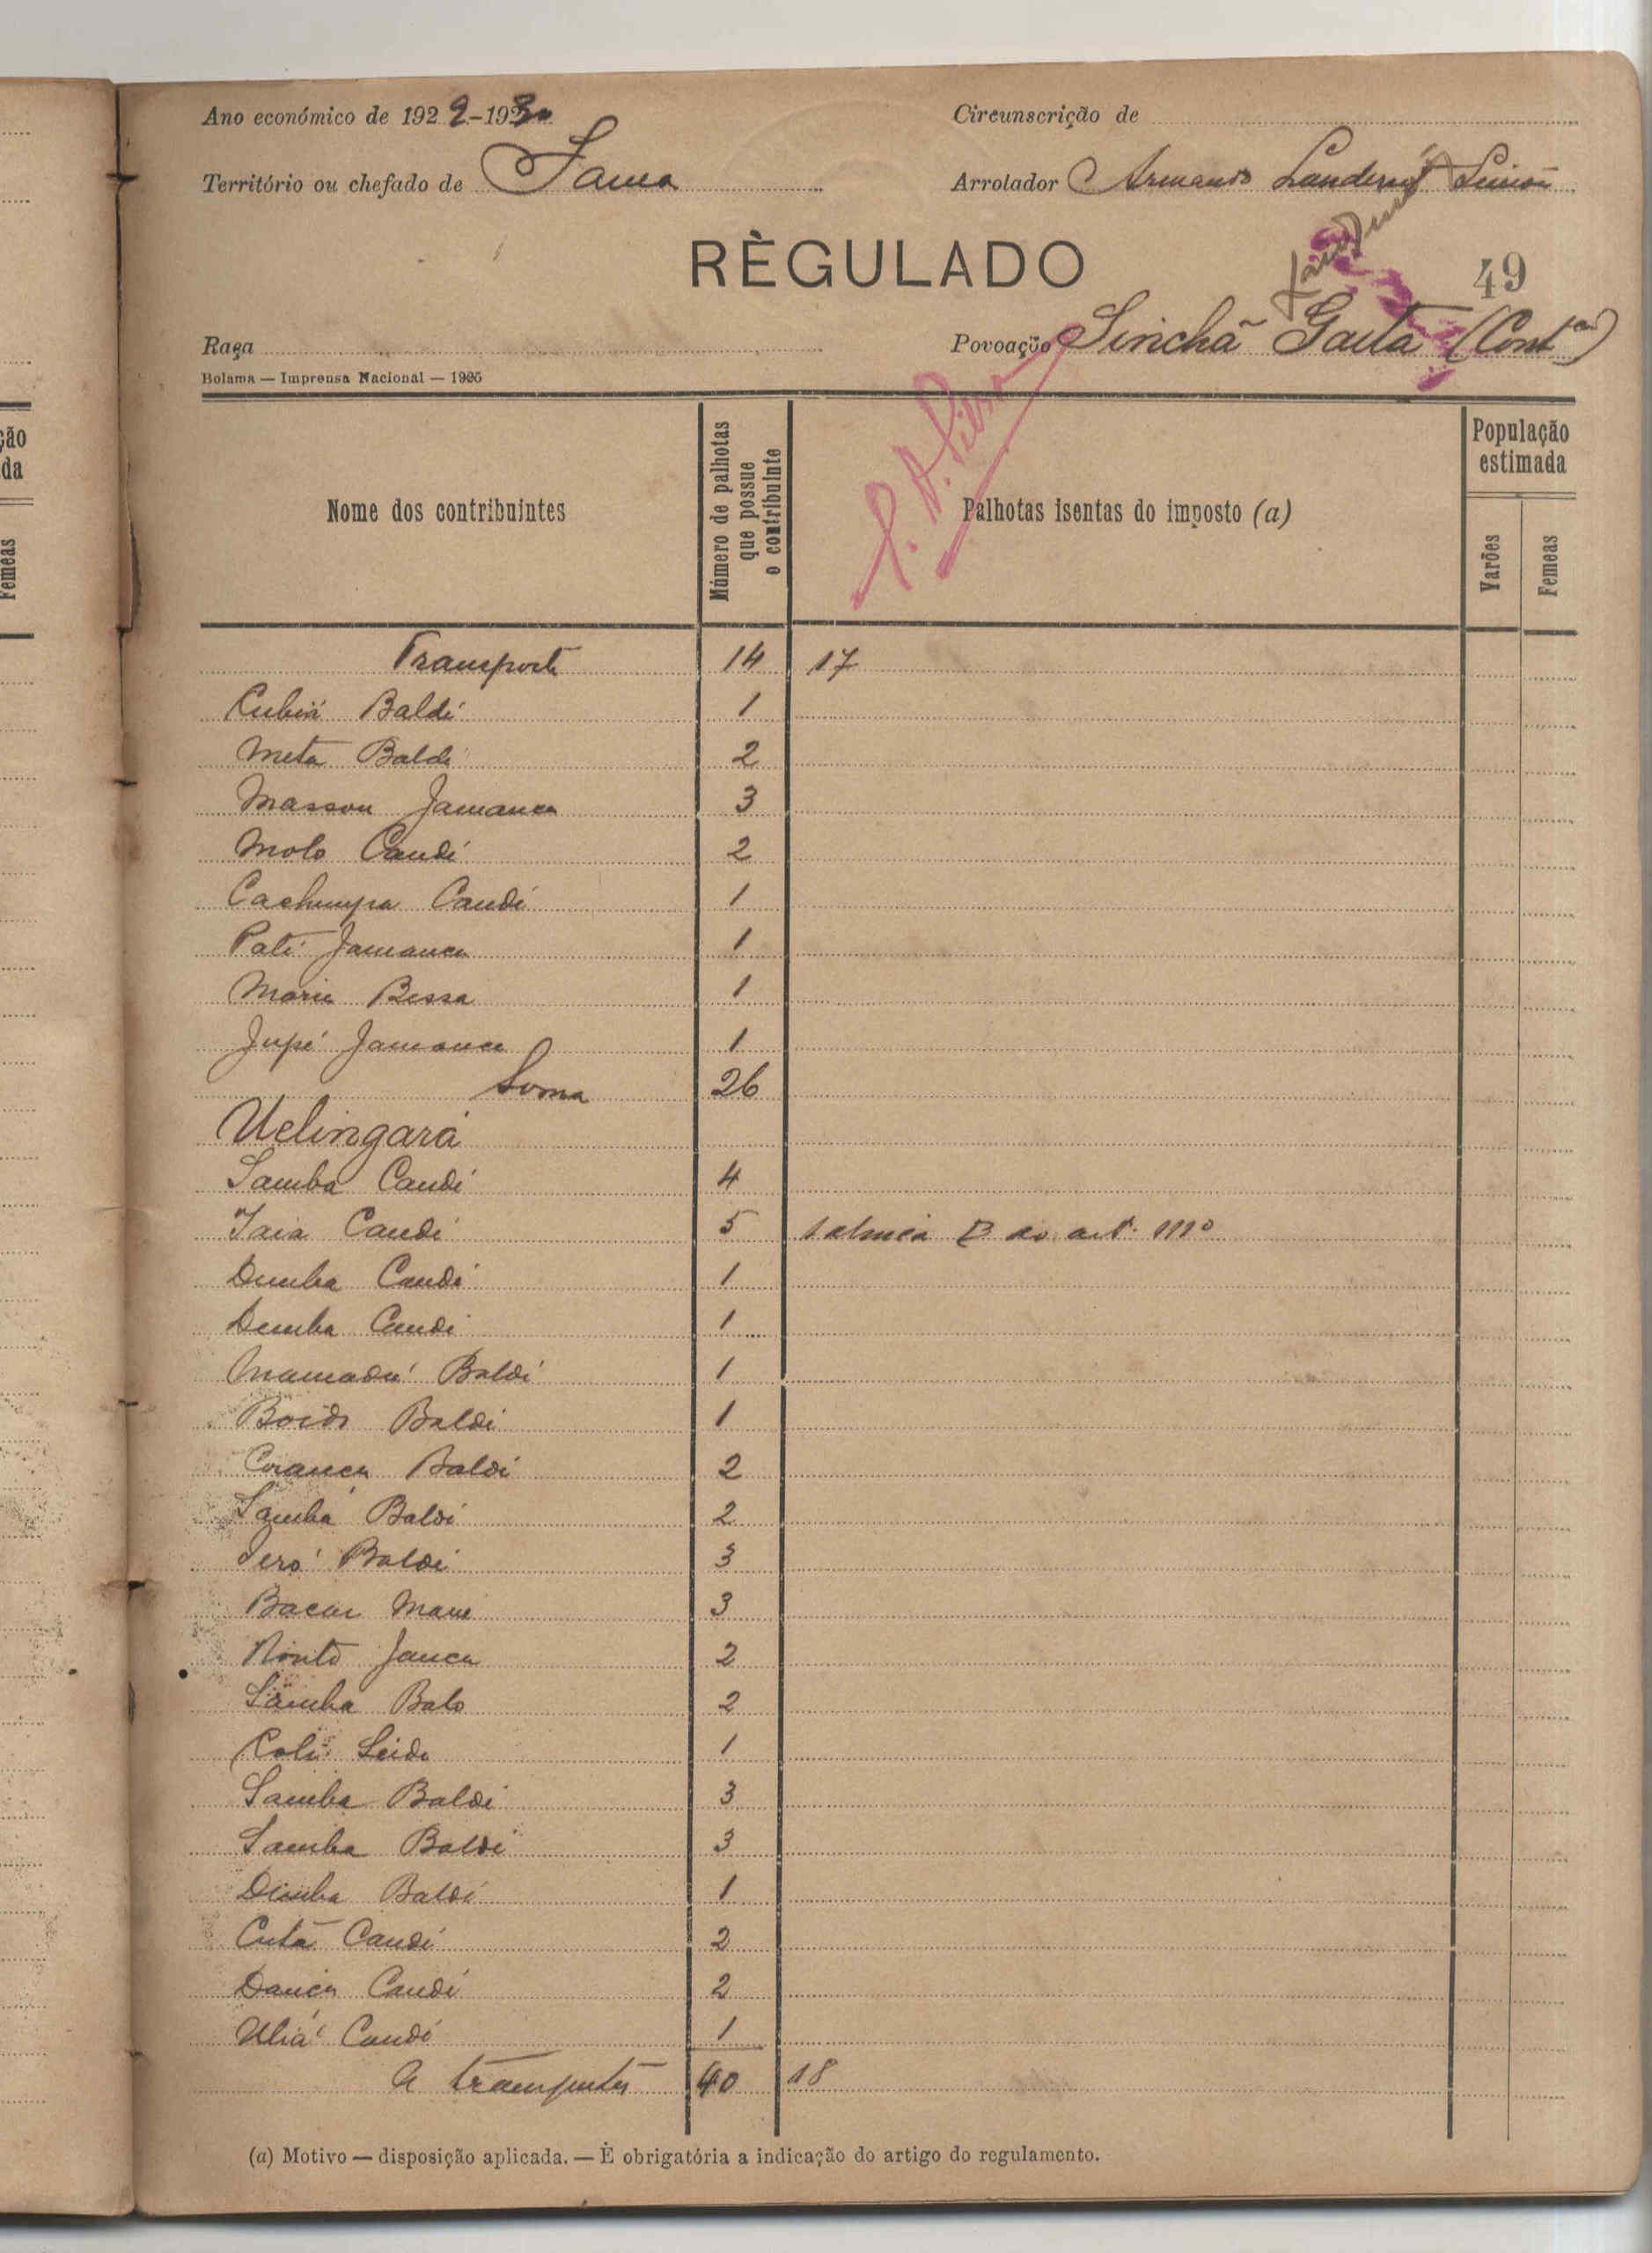 ção
da
Femeas
Ano económico de 1929-1930
Circunscrição de
Território ou chefado de Sama
Arrolador Armando
RÈGULADO
49
Raça
Povoação Sinchã Gaita (Cont.ão)
Bolama — Imprensa Nacional — 1925
Nome dos contribuintes
Número de palhotas que possue o contribuinte
Palhotas isentas do imposto (a)
População estimada
Varões
Femeas
Transporte 14 17
Baldé 1
Meta Baldé 2
Massou Jamanca 3
Molo Candé 2
Candé 1
Paté Jamanca 1
Maria Bessa 1
Jupé Jamanca 1
Soma 26
Uelingará
Samba Candé 4
Iaia Candé 5 1 alinea B do art. 111º
Demba Candé 1
Demba Candé 1
Mamadú Baldé 1
Boido Baldé 1
Baldé 2
Samba Baldé 2
Seró Baldé 3
Bacar Mané 3
Janca 2
Samba Balo 2
Coli Seide 1
Samba Baldé 3
Samba Baldé 3
Demba Baldé 1
Cutá Candé 2
Candé 2
Candé 1
A transportar 40 18
(a) Motivo — disposição aplicada. — É obrigatória a indicação do artigo do regulamento.